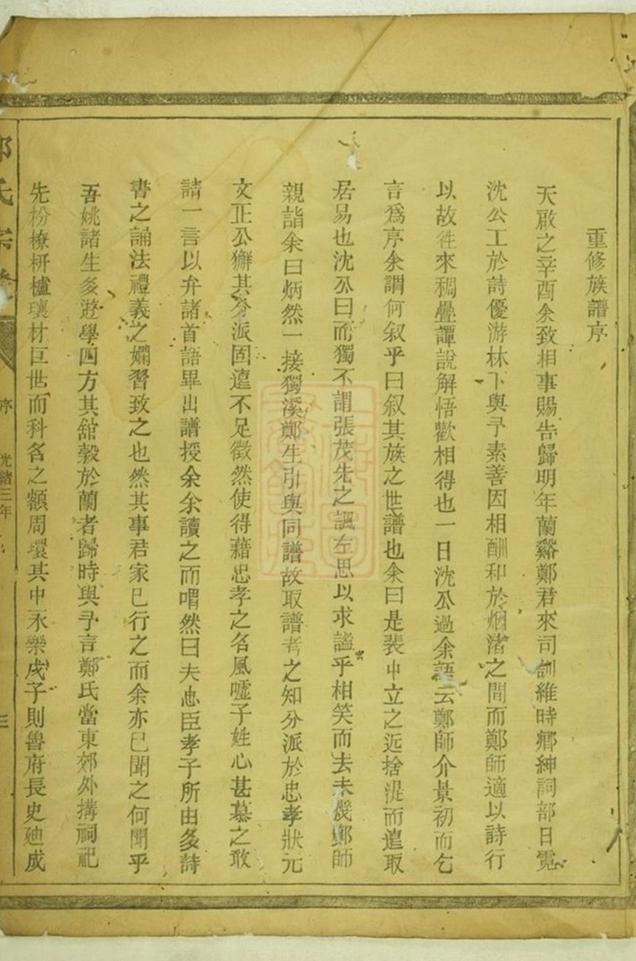 重修族譜序
天啟之辛酉余致相事賜告歸明年蘭谿鄭君來司訓維時鄉紳詞部日霓
沈公工於詩優游林下與予素善因相酬和於烟渚之間而鄭師適以詩行
以故徃來稠疊譚說解悟歡相得也一日沈公過余語云鄭師介景初而乞
言爲序余謂何叙乎曰叙其族之世譜也余曰是裴中立之近捨湜而遠取
居易也沈公曰而獨不謂張茂先之諷左思以求謐乎相笑而去未幾鄭師
親詣余曰炳然一接獨溪鄭生引與同譜故取譜考之知分派於忠孝狀元
文正公獬其分派固遠不足徵然使得藉忠孝之名風噓子姓心甚慕之敢
請一言以弁諸首語畢出譜授余余讀之而喟然曰夫忠臣孝子所由多詩
書之誦法禮義之嫻習致之也然其事君家已行之而余亦已聞之何聞乎
吾姚諸生多遊學四方其舘榖於蘭者歸時與予言鄭氏當東郊外搆祠祀
先枌橑枅櫨瓌材巨世而科名之額周環其中永樂戌子則魯府長史廸成
氏宗
序
光緒三年
三